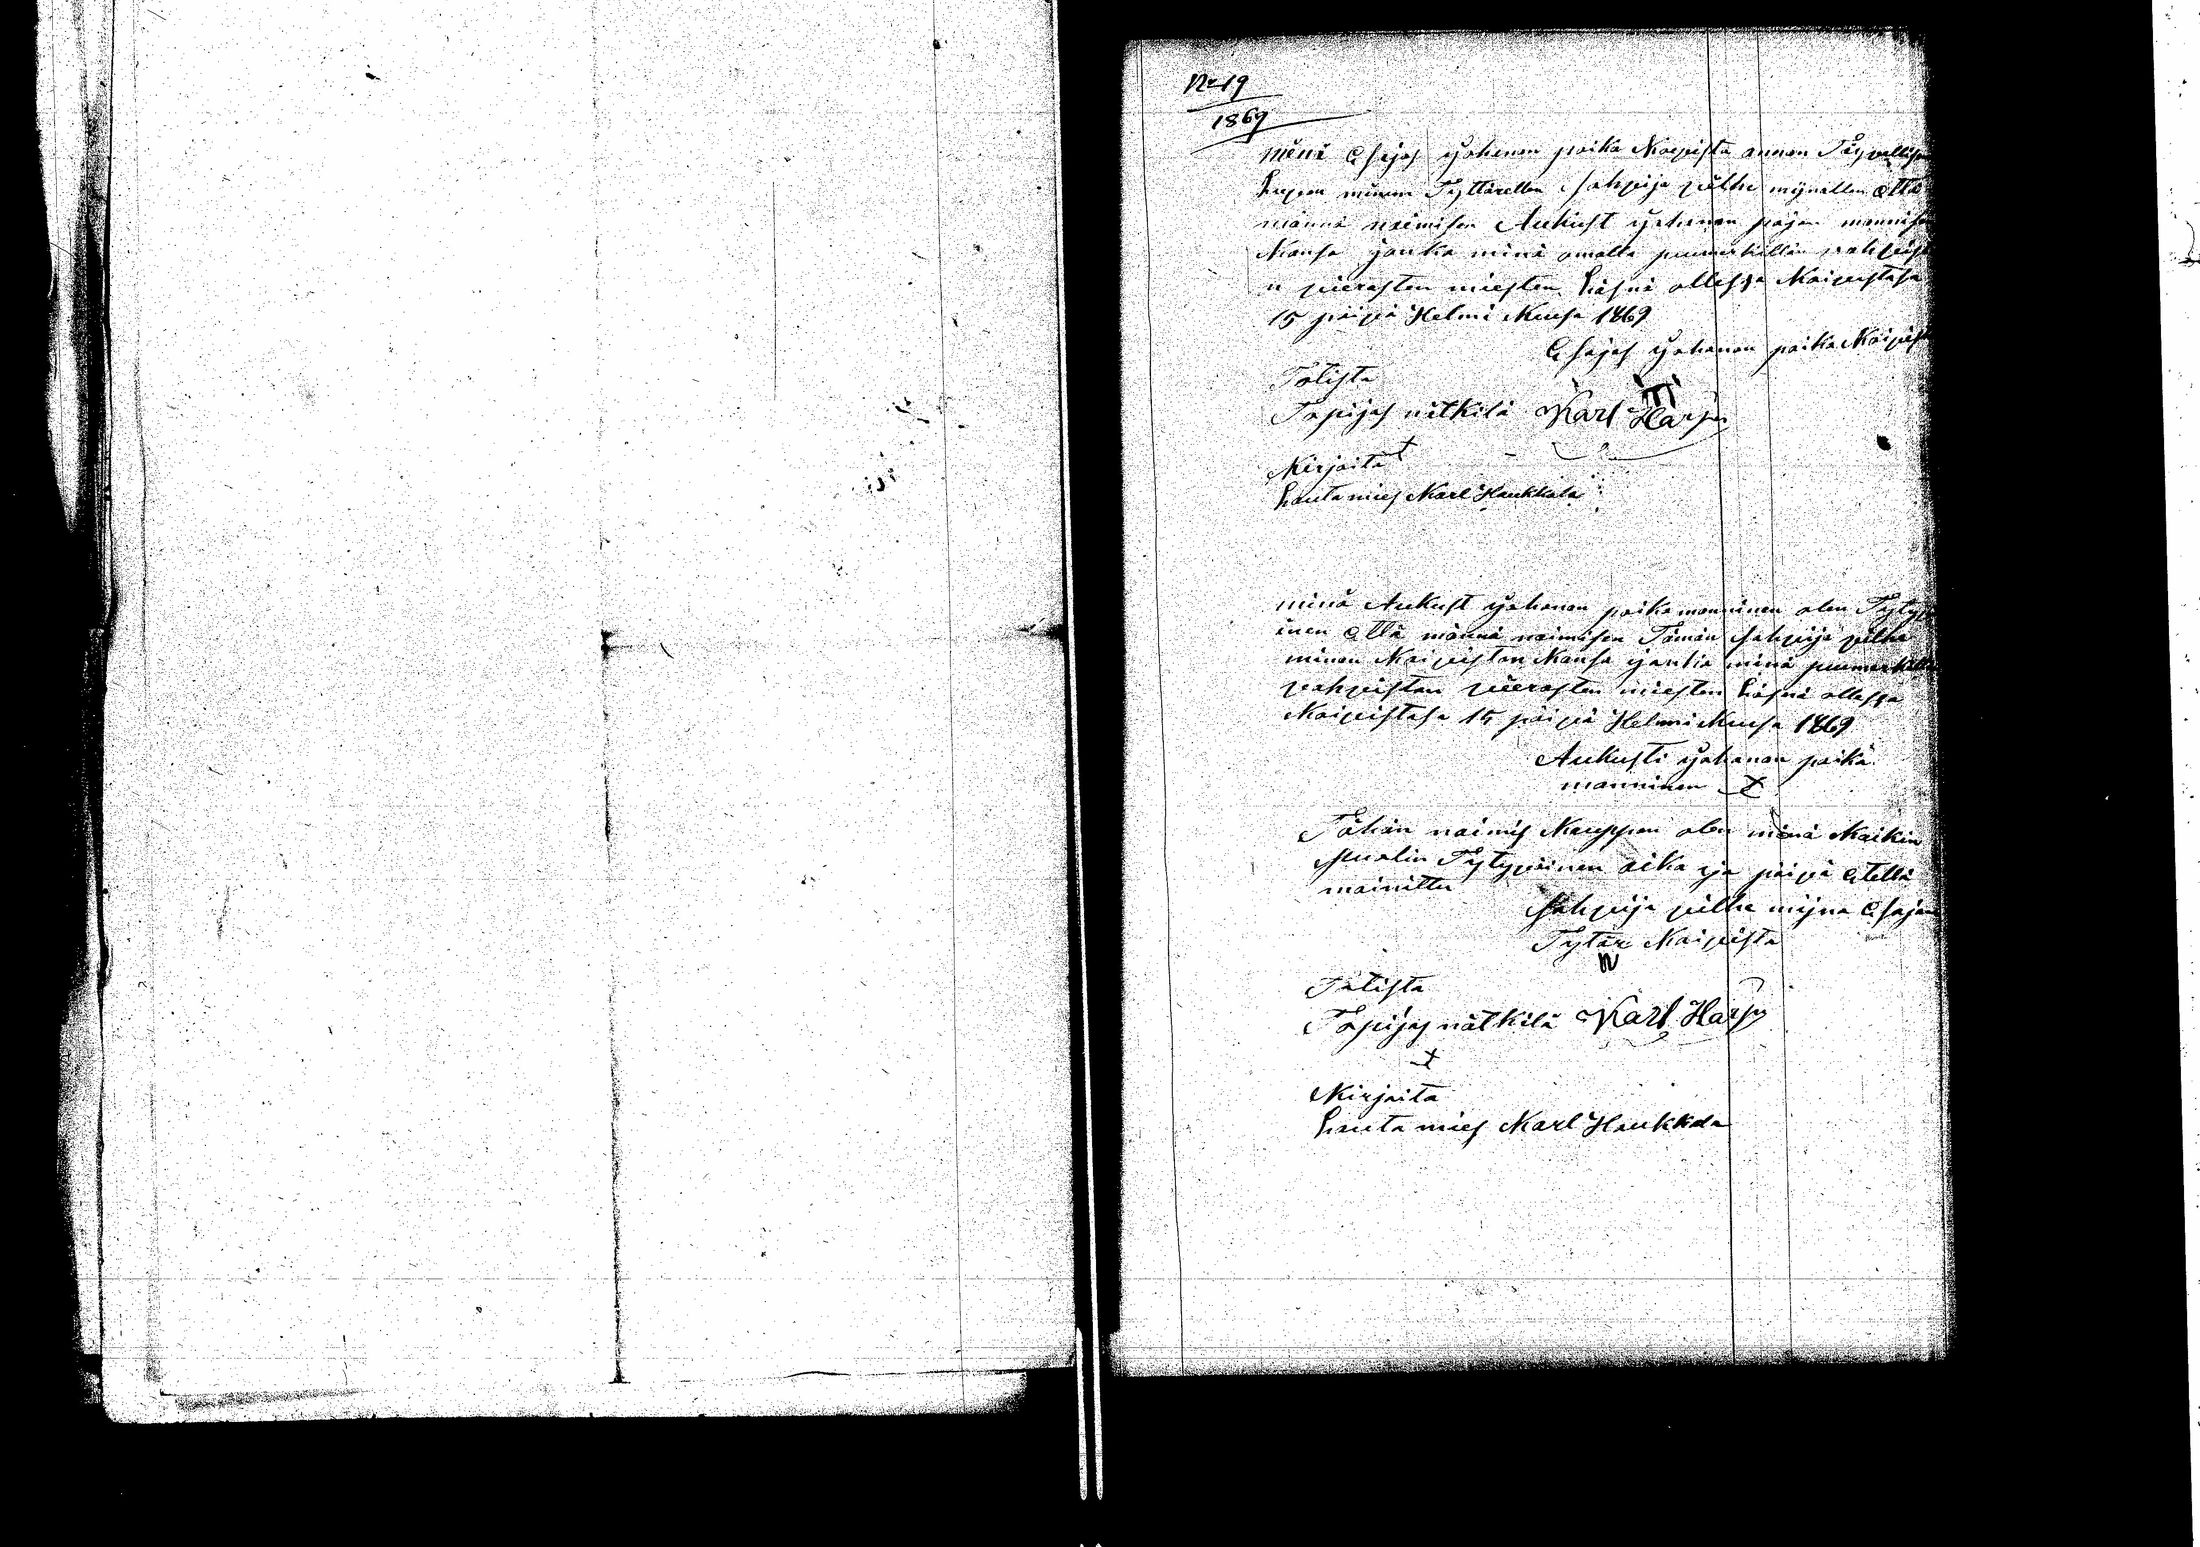 No 19
1869
minä Esajas yohanan poika Kaipista annan Täyvellisen
Lupan minun Tyttärellen Sahpija vilhe mijnallen Että
männä naimisen Aukust yohanan pojan mannisen
Kansa jonka minä omalla puumerkillän vahvista
n vierasten miesten Läsnä ollessa Kaipistasa
15 päivä Helmi Kuusa 1869
Esajas yohanan poika Kaipista
Totista
Tapijas nätkilä Karl Harju
Kirjoita
Lautamies Karl Haukkala
minä Aukust yohanan poika manninen olen Tytyvä
inen Että männä naimisen Tämän Sahpija vilhe
minan Kaipistan Kansa jonka minä puumerkillä
vahvistan vierasten miesten Läsnä ollessa
Kaipistasa 15 päivä Helmi Kuusa 1869
Aukusti yohanan poika
manninen
Tähän naimis Kauppan olen minä Kaikin
puolin Tytyväinen aika ja päivä Etellä
mainittu
Sahpija vilhe mijna Esajan
Tytär Kaipista
Totista
Tapijas nätkilä Karl Harju
Kirjoita
Lauta mies Karl Haukkala